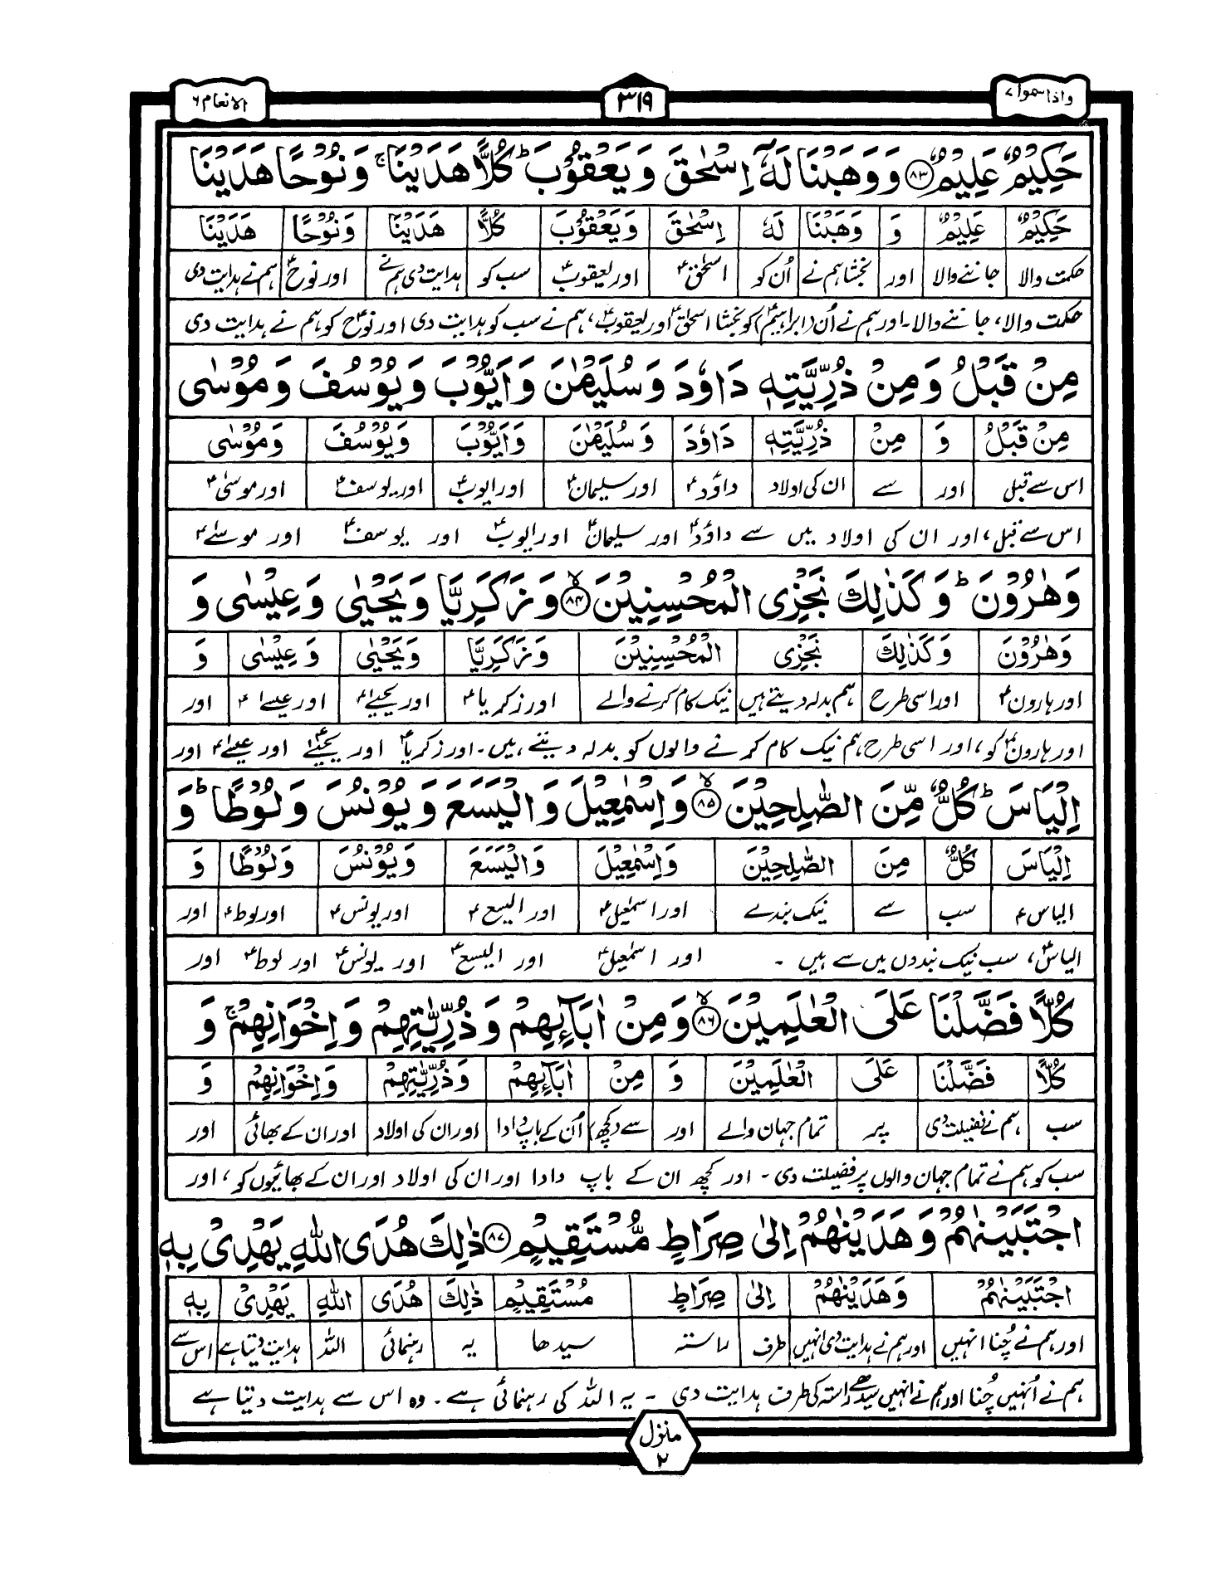 واذا سمعوا ۷
۳۱۹
الانعام ۶
حَكِيْمٌ عَلِيْمٌ ﴿۸۳﴾ وَ وَهَبْنَا لَهٗۤ اِسْحٰقَ وَ يَعْقُوْبَ ؕ كُلًّا هَدَيْنَا ۚ وَ نُوْحًا هَدَيْنَا
حَكِيْمٌ عَلِيْمٌ وَ وَهَبْنَا لَهٗ اِسْحٰقَ وَ يَعْقُوْبَ كُلًّا هَدَيْنَا وَ نُوْحًا هَدَيْنَا
حکمت والا جاننے والا اور بخشا ہم نے اُن کو اسحٰقؑ اور یعقوبؑ سب کو ہدایت دی ہم نے اور نوحؑ ہم نے ہدایت دی
حکمت والا، جاننے والا۔ اور ہم نے اُن (ابراہیمؑ) کو بخشا اسحاقؑ اور یعقوبؑ، ہم نے سب کو ہدایت دی اور نوحؑ کو ہم نے ہدایت دی
مِنْ قَبْلُ وَ مِنْ ذُرِّيَّتِهٖ دَاوٗدَ وَ سُلَيْمٰنَ وَ اَيُّوْبَ وَ يُوْسُفَ وَ مُوْسٰى
مِنْ قَبْلُ وَ مِنْ ذُرِّيَّتِهٖ دَاوٗدَ وَ سُلَيْمٰنَ وَ اَيُّوْبَ وَ يُوْسُفَ وَ مُوْسٰى
اس سے قبل اور سے ان کی اولاد داؤدؑ اور سلیمانؑ اور ایوبؑ اور یوسفؑ اور موسیٰؑ
اس سے قبل، اور ان کی اولاد میں سے داؤدؑ اور سلیمانؑ اور ایوبؑ اور یوسفؑ اور موسےٰؑ
وَ هٰرُوْنَ ؕ وَ كَذٰلِكَ نَجْزِى الْمُحْسِنِيْنَ ﴿۸۴﴾ۙ وَ زَكَرِيَّا وَ يَحْيٰى وَ عِيْسٰى وَ
وَ هٰرُوْنَ وَ كَذٰلِكَ نَجْزِى الْمُحْسِنِيْنَ وَ زَكَرِيَّا وَ يَحْيٰى وَ عِيْسٰى وَ
اور ہارونؑ اور اسی طرح ہم بدلہ دیتے ہیں نیک کام کرنے والے اور زکریاؑ اور یحییٰؑ اور عیسےٰؑ اور
اور ہارونؑ کو، اور اسی طرح ہم نیک کام کرنے والوں کو بدلہ دیتے ہیں۔ اور زکریاؑ اور یحییٰؑ اور عیسےٰؑ اور
اِلْيَاسَ ؕ كُلٌّ مِّنَ الصّٰلِحِيْنَ ﴿۸۵﴾ۙ وَ اِسْمٰعِيْلَ وَ الْيَسَعَ وَ يُوْنُسَ وَ لُوْطًا ؕ وَ
اِلْيَاسَ كُلٌّ مِنَ الصّٰلِحِيْنَ وَ اِسْمٰعِيْلَ وَ الْيَسَعَ وَ يُوْنُسَ وَ لُوْطًا وَ
الیاسؑ سب سے نیک بندے اور اسمٰعیلؑ اور الیسعؑ اور یونسؑ اور لوطؑ اور
الیاسؑ، سب نیک بندوں میں سے ہیں ۔ اور اسمٰعیلؑ اور الیسعؑ اور یونسؑ اور لوطؑ اور
كُلًّا فَضَّلْنَا عَلَى الْعٰلَمِيْنَ ﴿۸۶﴾ۙ وَ مِنْ اٰبَآئِهِمْ وَ ذُرِّيّٰتِهِمْ وَ اِخْوَانِهِمْ ۚ وَ
كُلًّا فَضَّلْنَا عَلَى الْعٰلَمِيْنَ وَ مِنْ اٰبَآئِهِمْ وَ ذُرِّيّٰتِهِمْ وَ اِخْوَانِهِمْ وَ
سب ہم نے فضیلت دی پر تمام جہان والے اور سے (کچھ) اُن کے باپ دادا اور ان کی اولاد اور ان کے بھائی اور
سب کو ہم نے تمام جہان والوں پر فضیلت دی ۔ اور کچھ ان کے باپ دادا اور ان کی اولاد اور ان کے بھائیوں کو، اور
اجْتَبَيْنٰهُمْ وَ هَدَيْنٰهُمْ اِلٰى صِرَاطٍ مُّسْتَقِيْمٍ ﴿۸۷﴾ ذٰلِكَ هُدَى اللّٰهِ يَهْدِىْ بِهٖ
اجْتَبَيْنٰهُمْ وَ هَدَيْنٰهُمْ اِلٰى صِرَاطٍ مُسْتَقِيْمٍ ذٰلِكَ هُدَى اللّٰهِ يَهْدِىْ بِهٖ
اور ہم نے چُنا انہیں اور ہم نے ہدایت دی انہیں طرف راستہ سیدھا یہ رہنمائی اللہ ہدایت دیتا ہے اس سے
ہم نے اُنہیں چُنا اور ہم نے انہیں سیدھے راستہ کی طرف ہدایت دی ۔ یہ اللہ کی رہنمائی ہے ۔ وہ اس سے ہدایت دیتا ہے
منزل
۲